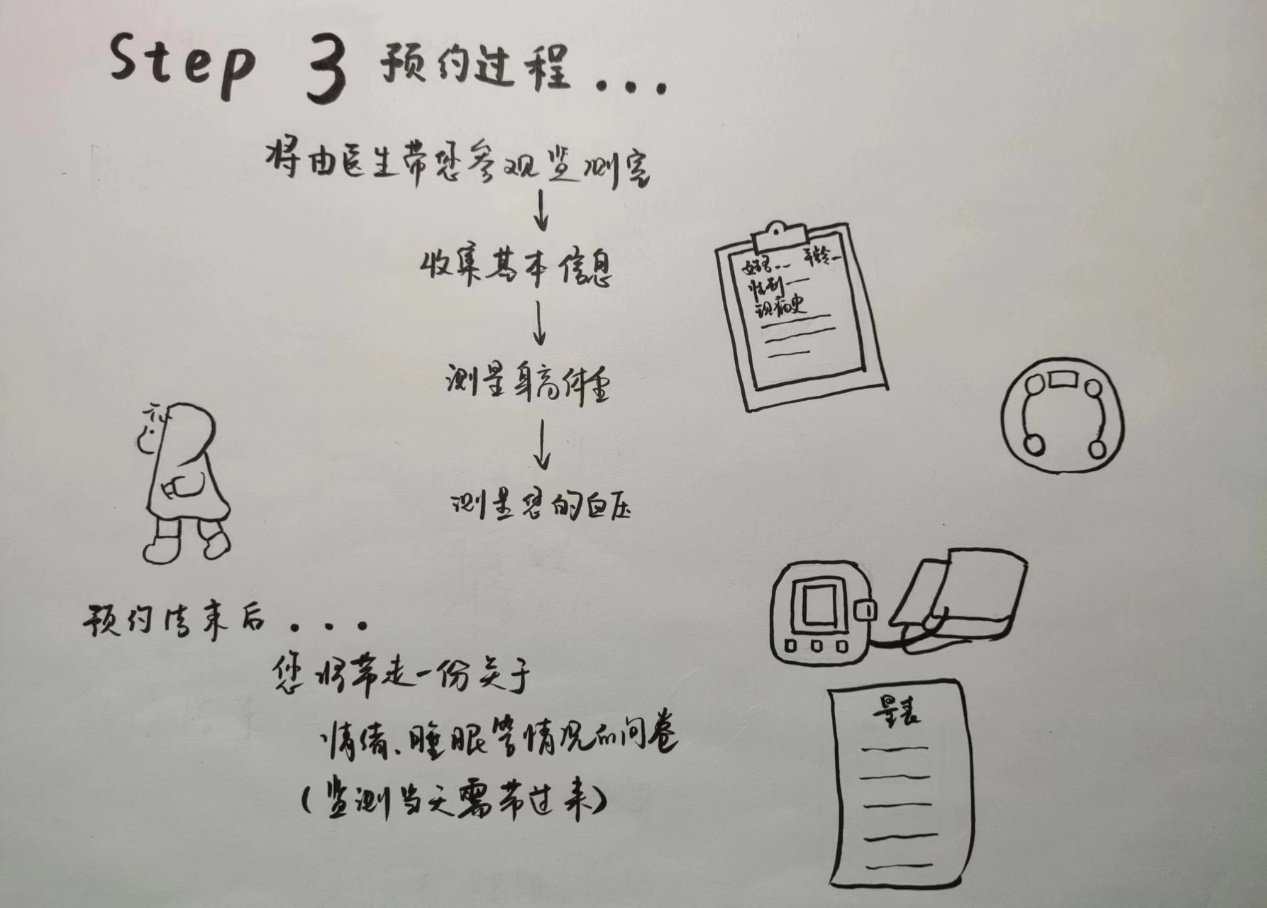 Step 3 预约过程...
将由医生带您参观监测室
收集基本信息
姓名... 年龄...
性别
现病史
测量身高体重
测量您的血压
预约结束后...
您将带走一份关于
情绪、睡眠等情况的问卷
(监测当天需带过来)
量表